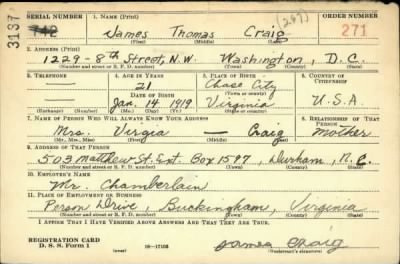 SERIAL NUMBER 1. NAME (Print) ORDER NUMBER
3137 742 James Thomas Craig (267) 271
(First) (Middle) (Last)
2. ADDRESS (Print)
1229-8th Street, N.W. Washington, D.C.
(Number and street or R. F. D. number) (Town) (County) (State)
3. TELEPHONE 4. AGE IN YEARS 5. PLACE OF BIRTH 6. COUNTRY OF CITIZENSHIP
— 21 Chase City
DATE OF BIRTH (Town or county)
— Jan. 14 1919 Virginia U.S.A.
(Exchange) (No.) (Mo.) (Day) (Yr.) (State or country)
7. NAME OF PERSON WHO WILL ALWAYS KNOW YOUR ADDRESS 8. RELATIONSHIP OF THAT PERSON
Mrs. Virgia — Craig Mother
(Mr., Mrs., Miss) (First) (Middle) (Last)
9. ADDRESS OF THAT PERSON
503 Matthew St. Box 1597, Durham, N.C.
(Number and street or R. F. D. number) (Town) (County) (State)
10. EMPLOYER'S NAME
Mr. Chamberlain
11. PLACE OF EMPLOYMENT OR BUSINESS
Person Drive, Buckingham, Virginia
(Number and street or R. F. D. number) (Town) (County) (State)
I AFFIRM THAT I HAVE VERIFIED ABOVE ANSWERS AND THAT THEY ARE TRUE.
REGISTRATION CARD
D. S. S. Form 1 (over) 16-17105 James Craig
(Registrant's signature)